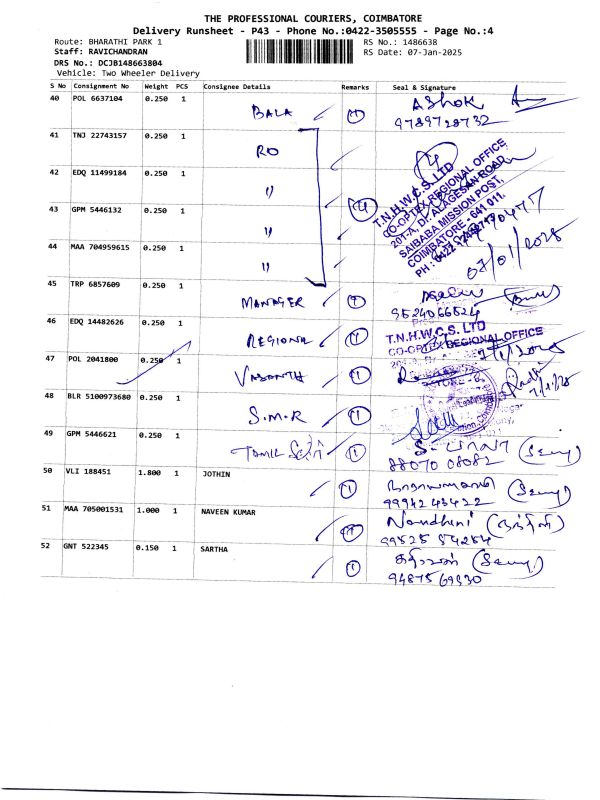 THE PROFESSIONAL COURIERS, COIMBATORE
Delivery Runsheet - P43 - Phone No.:0422-3505555 - Page No.:4
Route: BHARATHI PARK 1 RS No.: 1486638
Staff: RAVICHANDRAN RS Date: 07-Jan-2025
DRS No.: DCJB148663804
Vehicle: Two Wheeler Delivery
S No Consignment No Weight PCS Consignee Details Remarks Seal & Signature
40 POL 6637104 0.250 1 BALA AShok
9789728732
41 TNJ 22743157 0.250 1 RO
42 EDQ 11499184 0.250 1 〃
43 GPM 5446132 0.250 1 〃
44 MAA 704959615 0.250 1 〃
T.N.H.W.C.S. LTD
CO-OPTEX REGIONAL OFFICE
201-A, Dr. ALAGESAN ROAD,
SAIBABA MISSION POST,
COIMBATORE - 641 011.
07/01/2025
45 TRP 6857609 0.250 1 MANAGER
9524066524
46 EDQ 14482626 0.250 1 REGIONAL 1
T.N.H.W.C.S. LTD
CO-OPTEX REGIONAL OFFICE
47 POL 2041800 0.250 1 VASANTH 1
7/1/25
48 BLR 5100973680 0.250 1 S.M.R 1
49 GPM 5446621 0.250 1 TAMIL 1
88070 08082
50 VLI 188451 1.800 1 JOTHIN 1
99942 43422
51 MAA 705001531 1.000 1 NAVEEN KUMAR Nandhini (நந்தினி)
99525 54254
52 GNT 522345 0.150 1 SARTHA 1
94875 69930